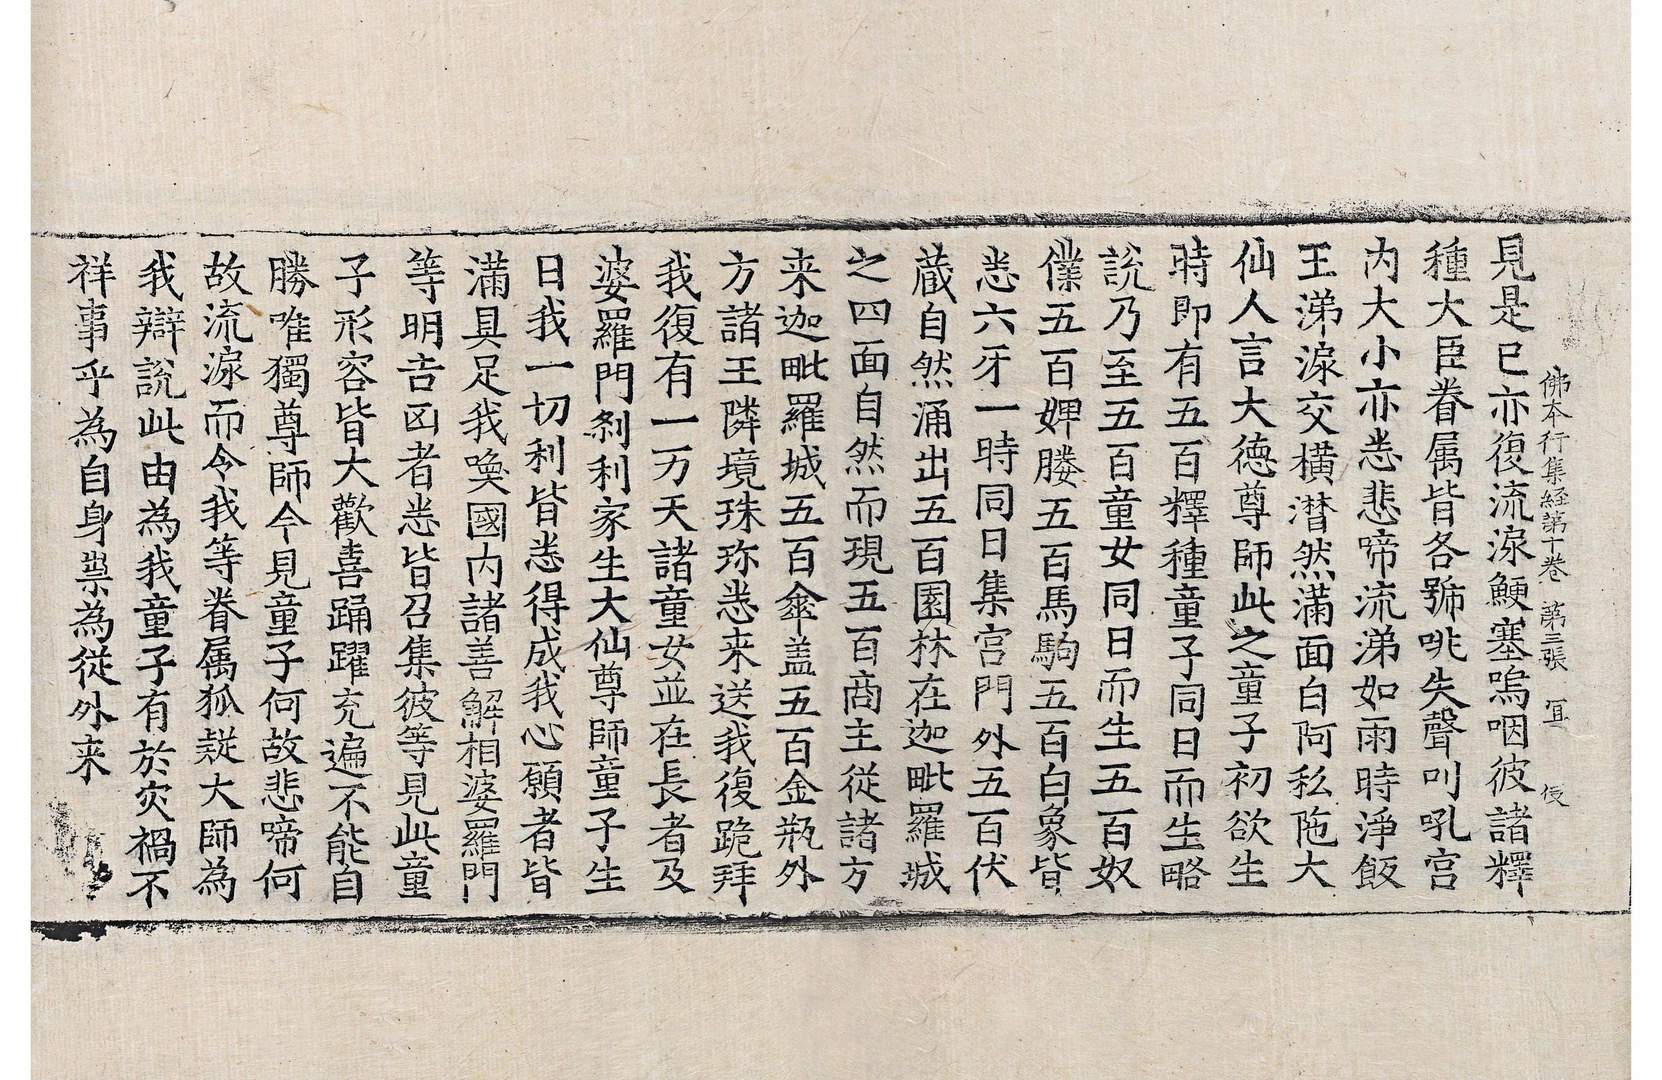 佛本行集経第十卷 第三張 冝
見是已亦復流淚鯁塞嗚咽彼諸釋
種大臣眷属皆各號咷失聲叫吼宫
内大小亦悉悲啼流涕如雨時淨飯
王涕淚交横潸然滿面白阿私陁大
仙人言大德尊師此之童子初欲生
時即有五百釋種童子同日而生略
說乃至五百童女同日而生五百奴
僕五百婢媵五百馬駒五百白象皆
悉六牙一時同日集宫門外五百伏
蔵自然涌出五百園林在迦毗羅城
之四面自然而現五百商主從諸方
来迦毗羅城五百傘盖五百金瓶外
方諸王隣境珠珎悉来送我復跪拜
我復有一万天諸童女並在長者及
婆羅門刹利家生大仙尊師童子生
日我一切利皆悉得成我心願者皆
滿具足我喚國内諸善解相婆羅門
等明吉凶者悉皆召集彼等見此童
子形容皆大歡喜踊躍充遍不能自
勝唯獨尊師今見童子何故悲啼何
故流淚而令我等眷属狐疑大師為
我辯說此由為我童子有於灾禍不
祥事乎為自身業為從外来